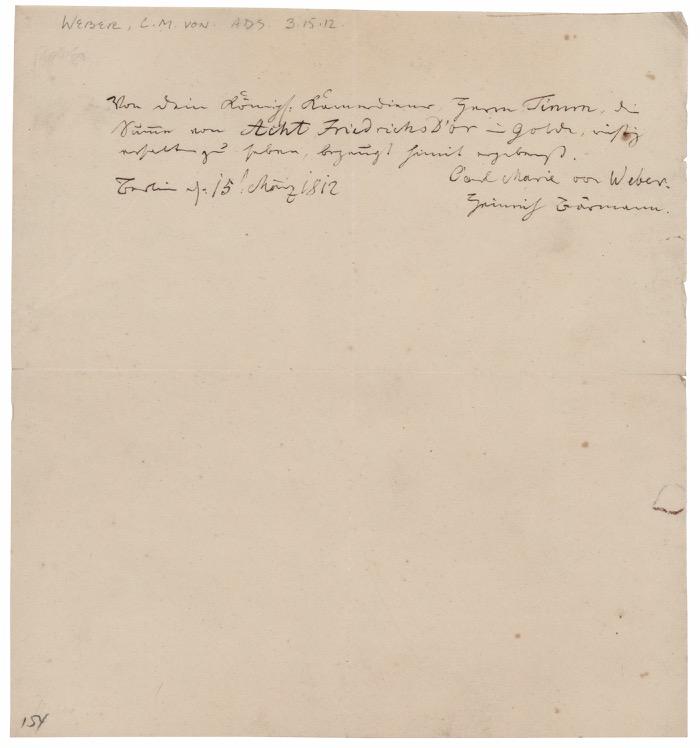 WEBER, C. M. VON. ADS 3.15.12.
Von dem Königl: Kammerdiener, Herrn Timm, die
Summe von Acht FriedrichsD'or in Golde, richtig
erhalten zu haben, bezeugt hiemit ergebenst.
Berlin d: 15t März 1812
Carl Marie von Weber.
Heinrich Bärmann.
154